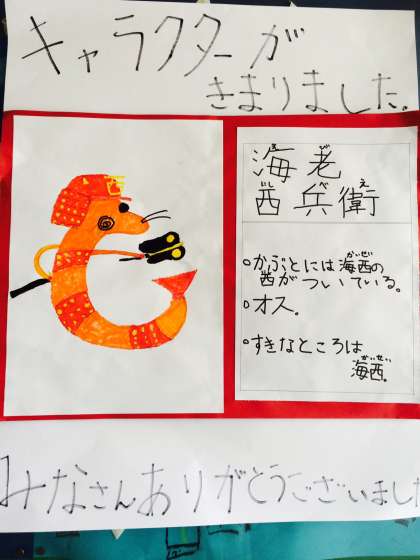 キャラクターが
きまりました。
海老
酋兵衛
。かぶとには海西の
酋がついている。
。オス。
。すきなところは
海西。
みなさんありがとうございました